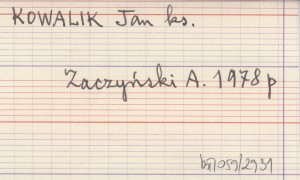 KOWALIK Jan ks.
Zaczyński A. 1978 p
bp/059/2931